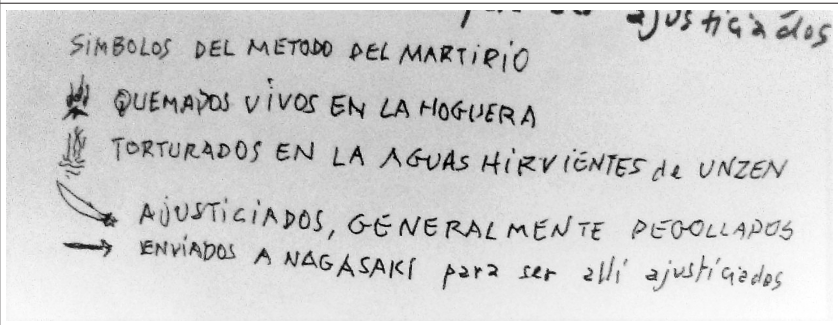 ajusticiados
SIMBOLOS DEL METODO DEL MARTIRIO
QUEMADOS VIVOS EN LA HOGUERA
TORTURADOS EN LA AGUAS HIRVIENTES de UNZEN
AJUSTICIADOS, GENERALMENTE DEGOLLADOS
ENVIADOS A NAGASAKI para ser alli ajusticiados